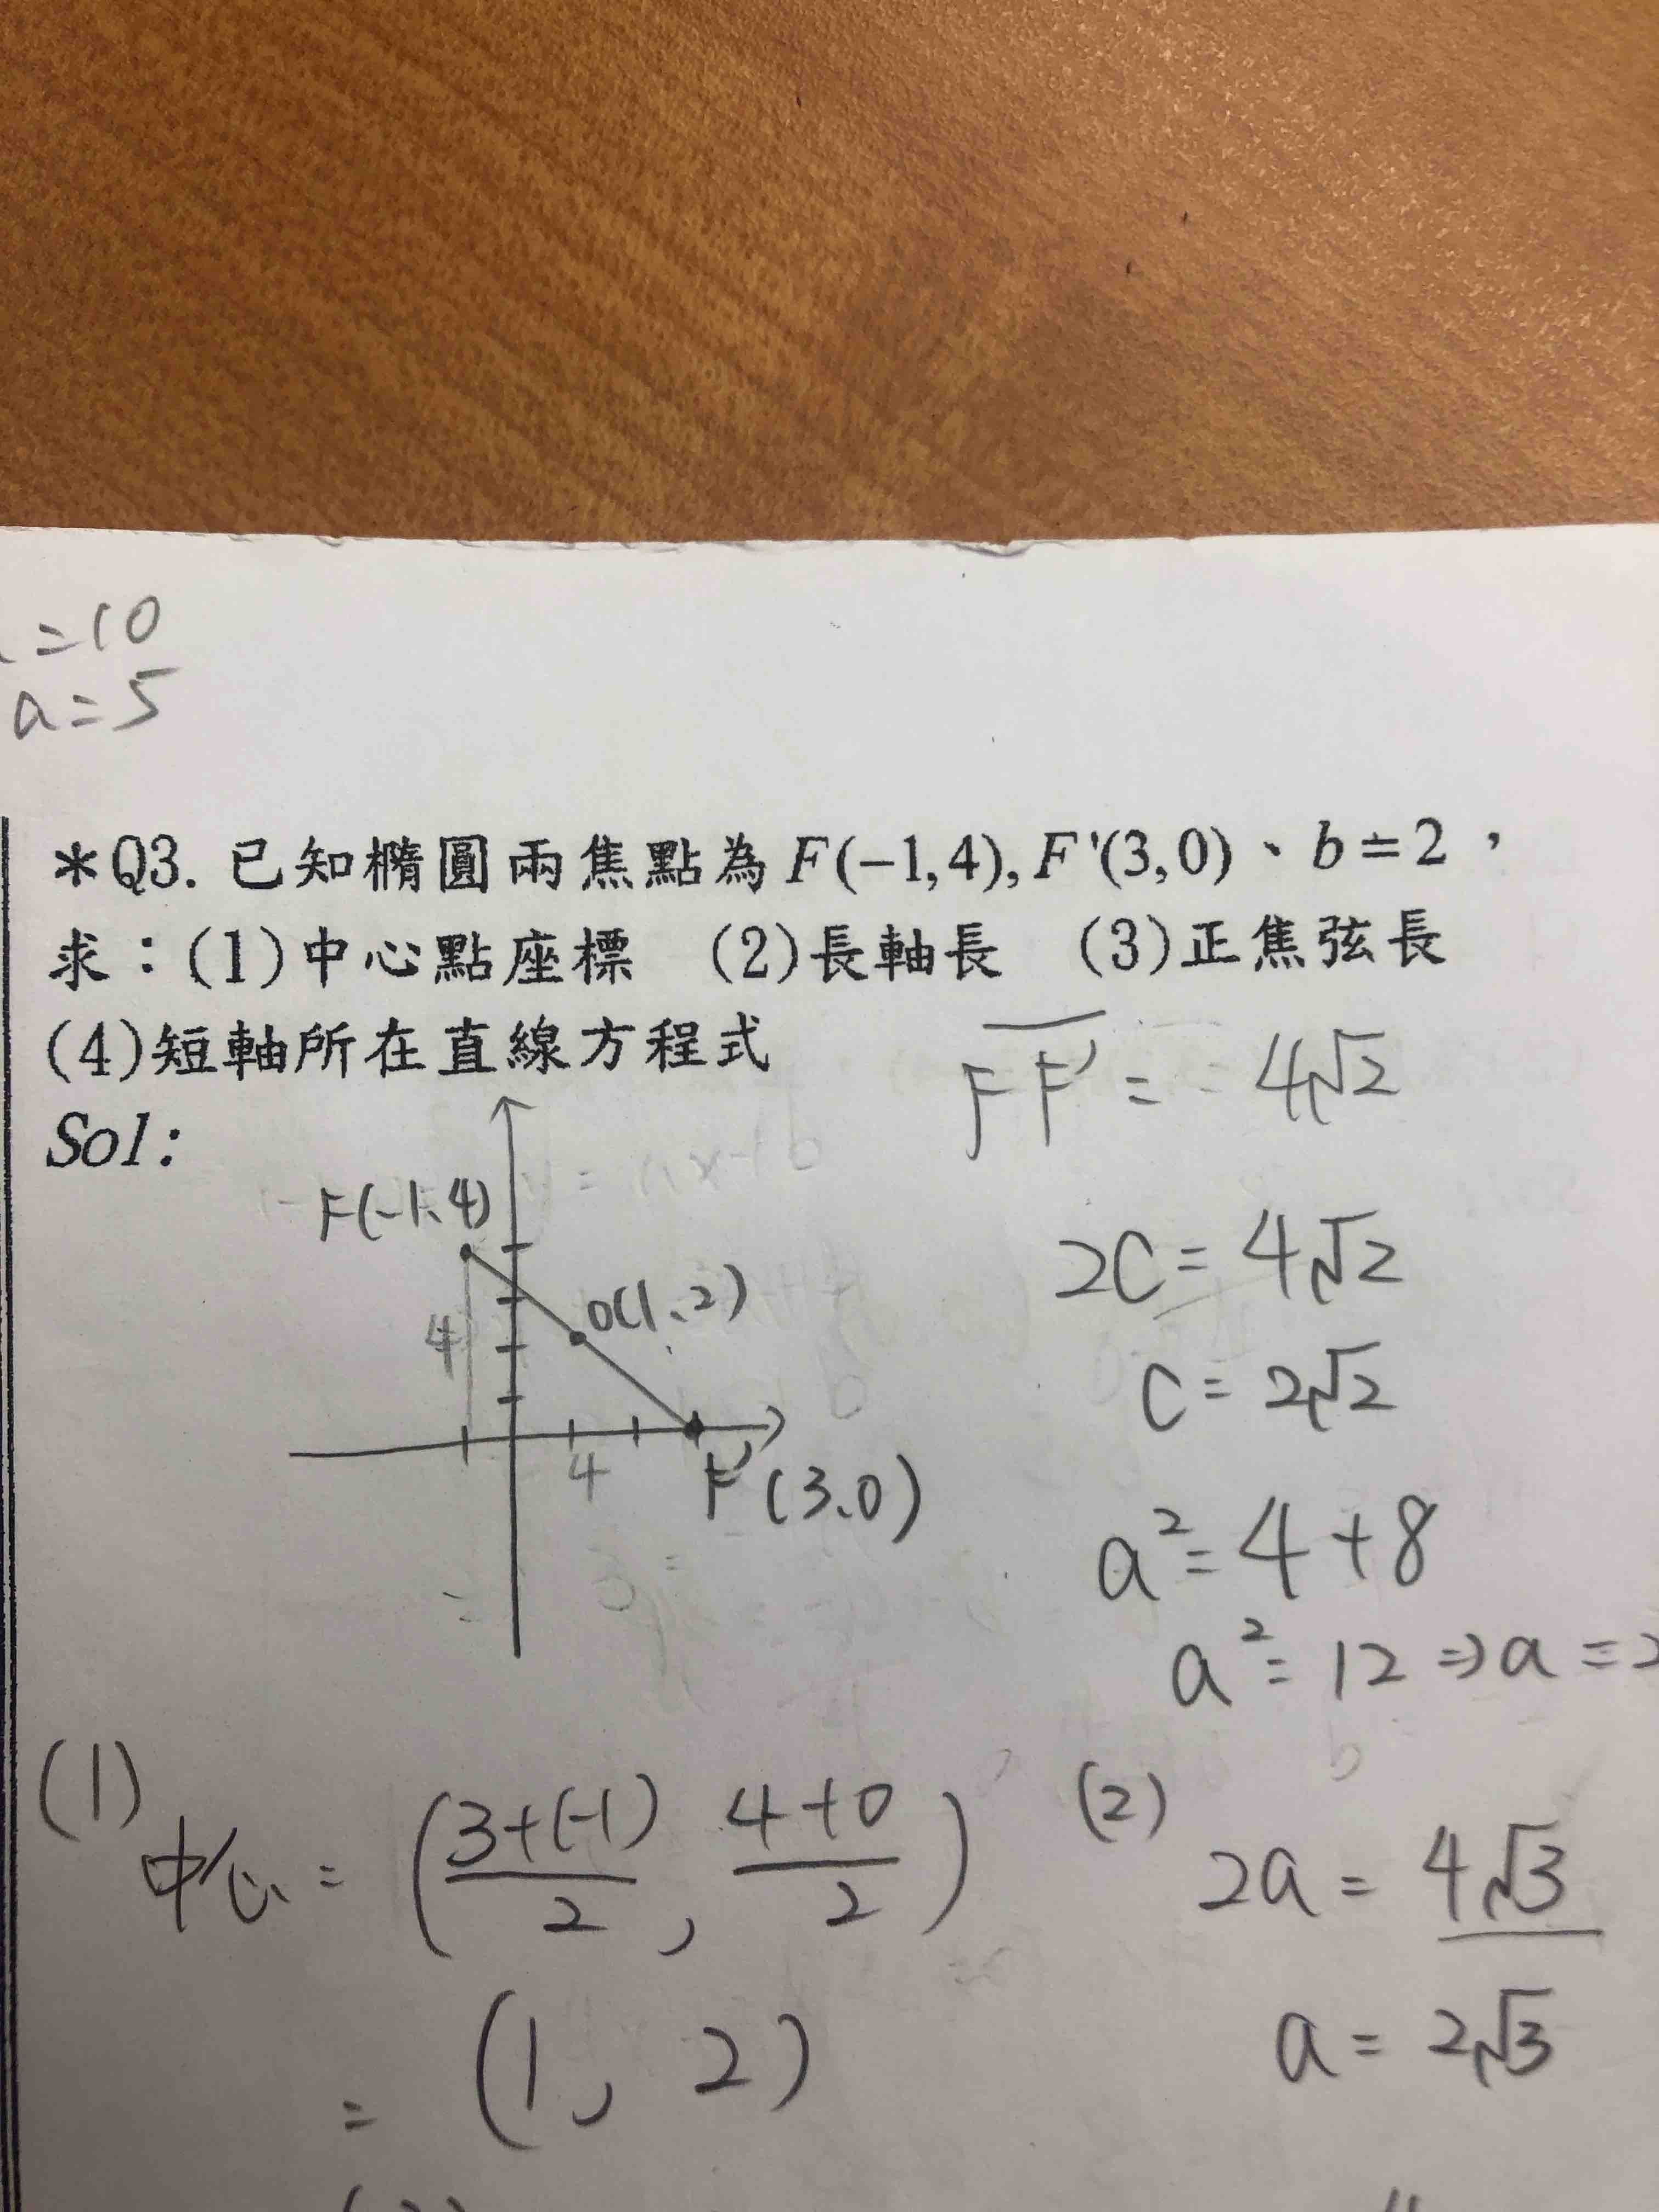 =10
a=5
*Q3. 已知橢圓兩焦點為F(−1,4),F'(3,0)、b=2，
求：(1)中心點座標 (2)長軸長 (3)正焦弦長
(4)短軸所在直線方程式
FF' = 4√2
Sol:
F(-1、4)
2C = 4√2
O(1、2)
4
C = 2√2
4
F'(3、0)
a² = 4+8
a² = 12 ⇒ a = 2
(1)
中心 = (3+(-1)/2 , 4+0/2)
= (1, 2)
(2)
2a = 4√3
a = 2√3